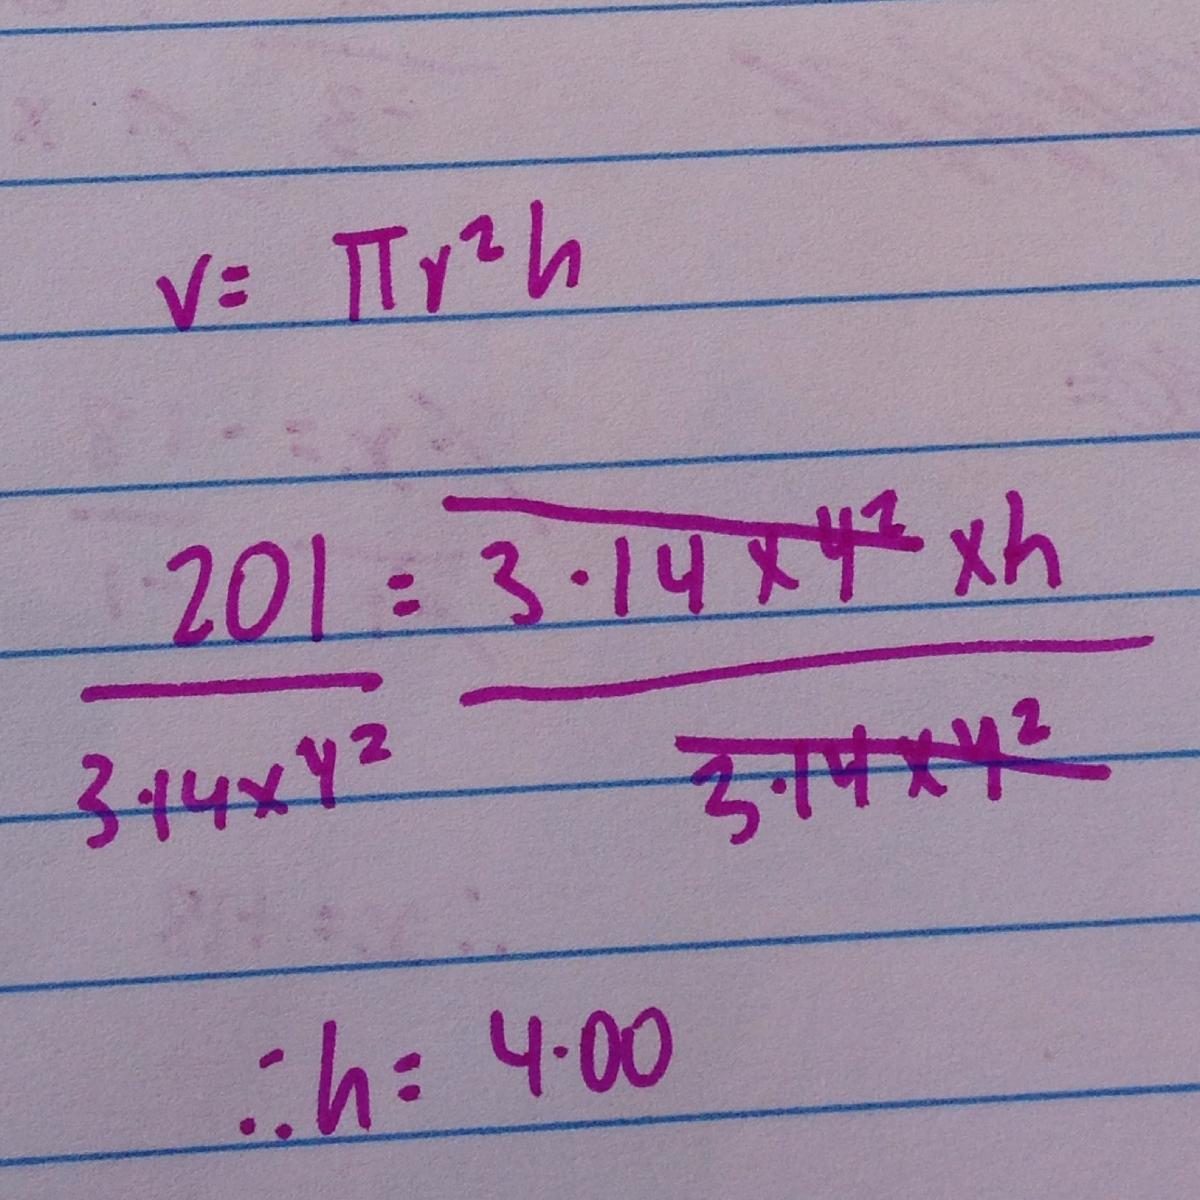 V = πr²h
201 = 3·14 x 4² x h
3·14 x 4² 3·14 x 4²
∴ h = 4·00